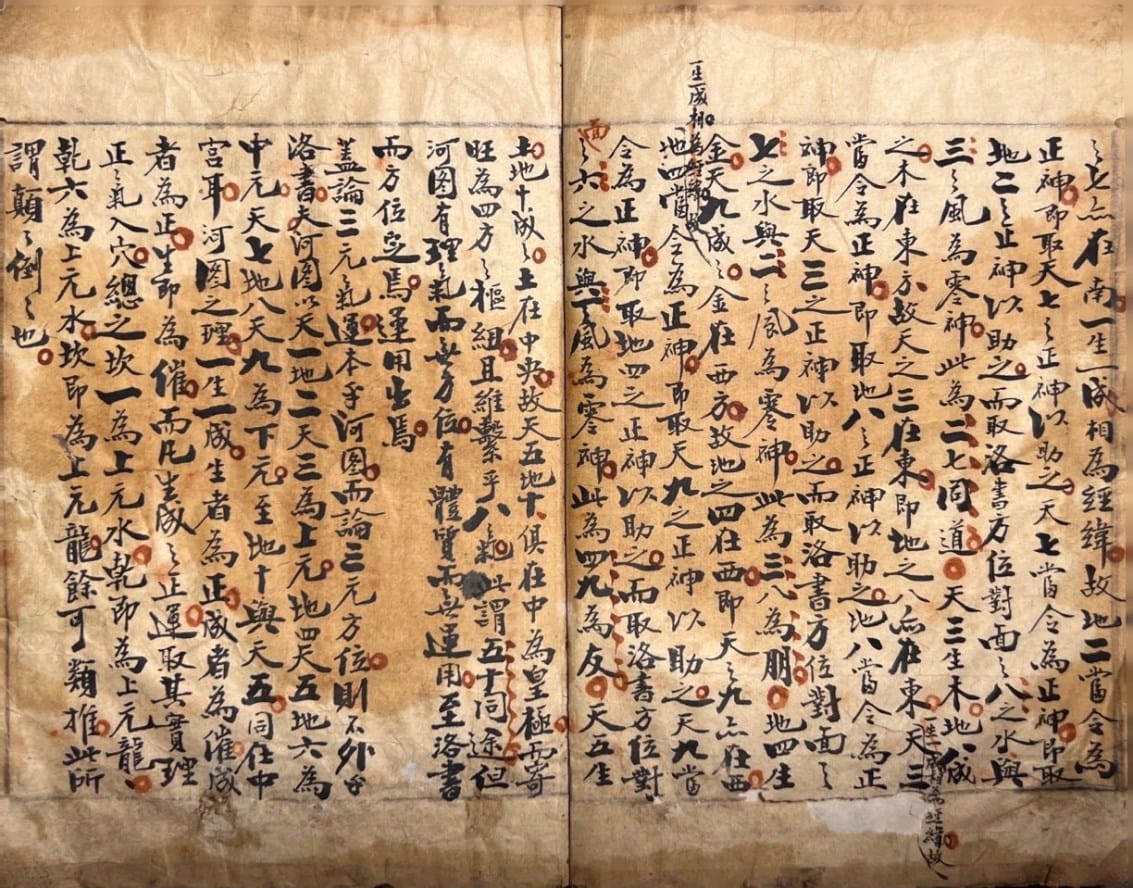 之七亦在南一生一成相為經緯故地二當令為
正神即取天七之正神以助之天七當令為正神即取
地二之正神以助之而取洛書方位對面之八之水與
三之風為零神此為二七同道天三生木地八成
之木在東方故天之三在東即地之八亦在東天三
一生一成相為經緯故
當令為正神即取地八之正神以助之地八當令為正
神即取天三之正神以助之而取洛書方位對面之
七之水與二之風為零神此為三八為朋地四生
金天九成之金在西方故地之四在西即天之九亦在西
一生一成相為經緯故
地四當令為正神即取天九之正神以助之天九當
令為正神即取地四之正神以助之而取洛書方位對
面之六之水與一之風為零神此為四九為友天五生
土地十成之土在中央故天五地十俱在中為皇極而寄
旺為四方之樞紐且維繫乎八之氣此謂五十同途但
河图有理氣而無方位有體質而無運用至洛書
而方位定焉運用出焉
蓋論三元之氣運本乎河图而論三元方位則不外乎
洛書夫河图以天一地二天三為上元地四天五地六為
中元天七地八天九為下元至地十與天五同任中
宮耳河图之理一生一成生者為正成者為催成
者為正生即為催而凡生成之正運取其實理
正之氣入穴總之坎一為上元水乾即為上元龍
乾六為上元水坎即為上元龍餘可類推此所
謂顛之倒之也